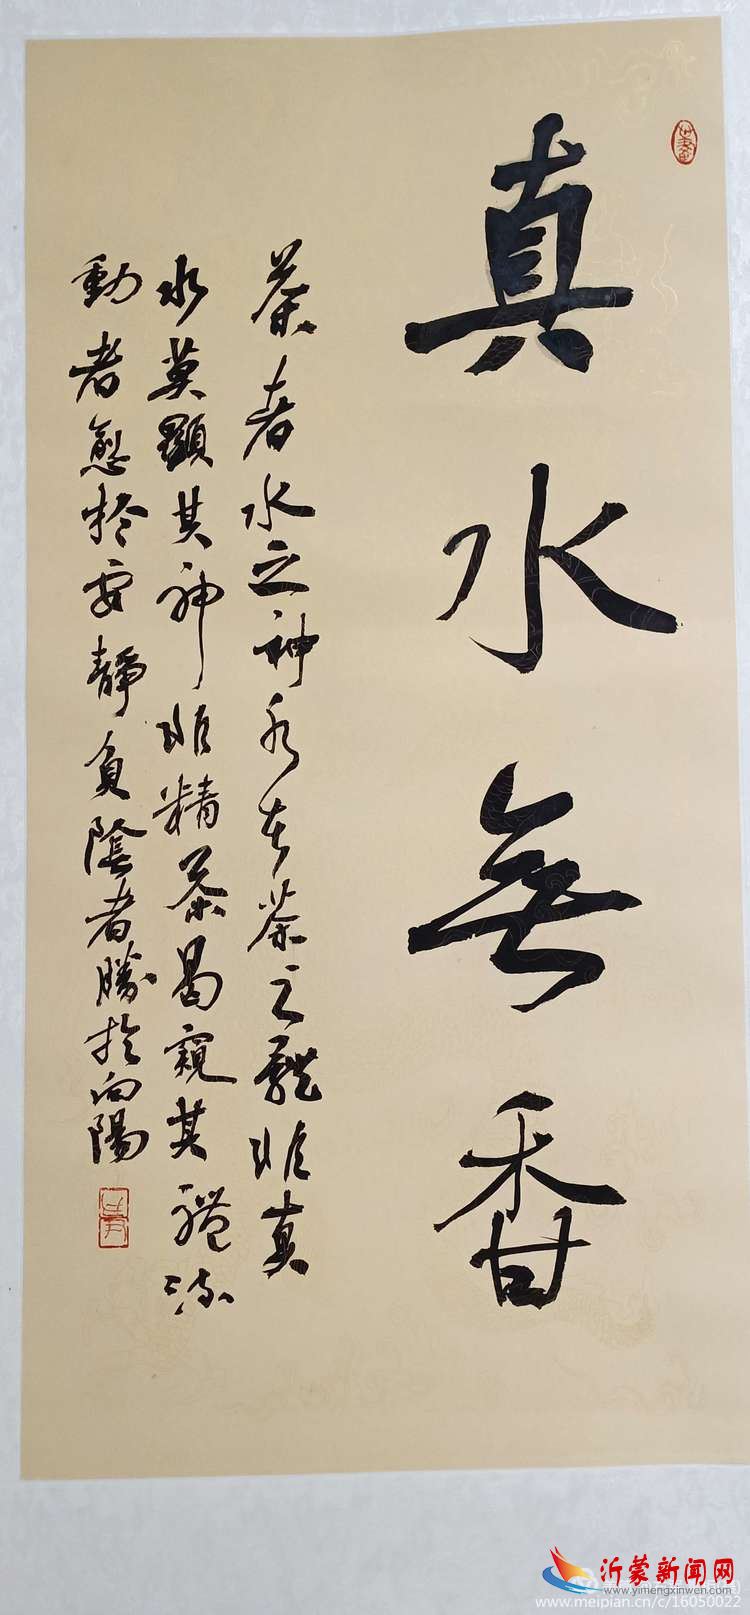 真水無香
茶者水之神水者茶之體非真
水莫顯其神非精茶曷窺其體流
動者愈於安靜負陰者勝於向陽
沂蒙新闻网
www.yimengxinwen.com
www.meipian.cn/c/16050022